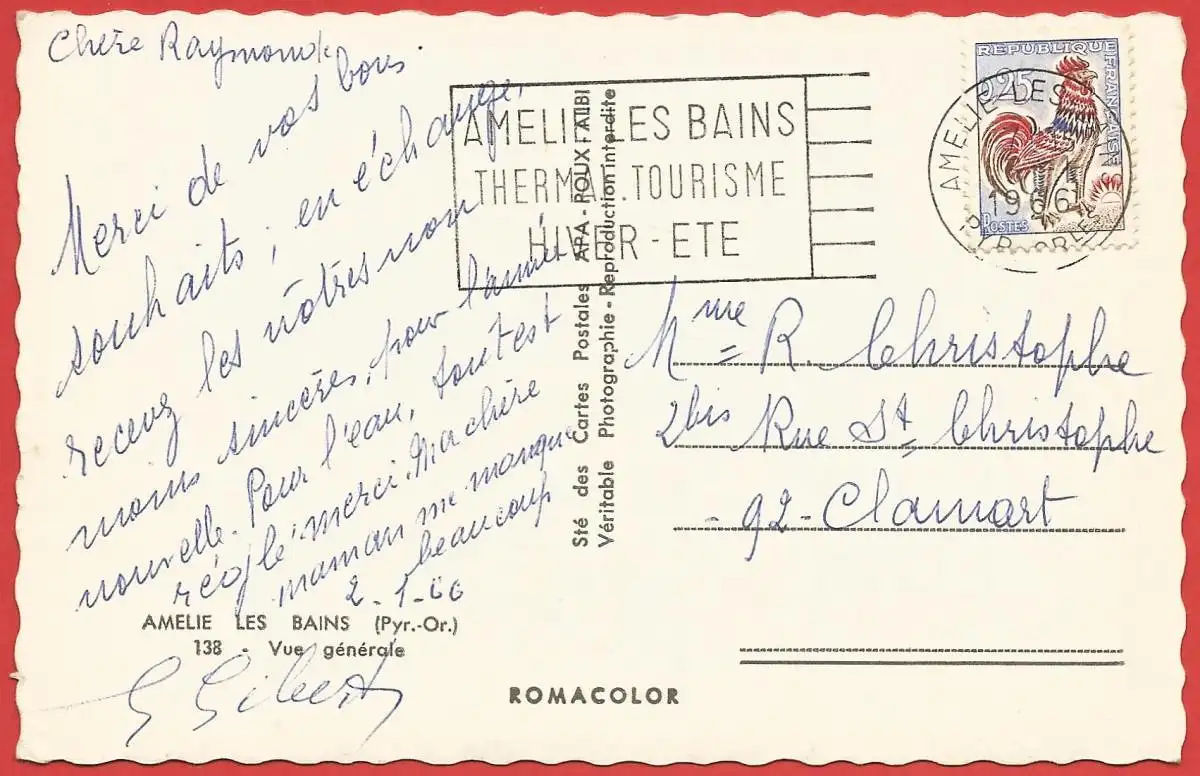 Chère Raymonde
Merci de vos bons
souhaits; en échange,
recevez les nôtres non
moins sincères, pour l'année
nouvelle. Pour l'eau, tout est
réglé. merci. Ma chère
maman me manque
beaucoup
2-1-66
AMELIE LES BAINS (Pyr.-Or.)
138 - Vue générale
G Gibert
AMELIE LES BAINS
THERMAL.TOURISME
HIVER - ETE
Sté des Cartes Postales APA - POUX - ALBI
Véritable Photographie - Reproduction interdite
REPUBLIQUE FRANÇAISE
0,25
POSTES
AMELIE LES BAINS
1966
PYR. ORLES
Mme R. Christophe
2bis Rue St Christophe
- 92 - Clamart
ROMACOLOR